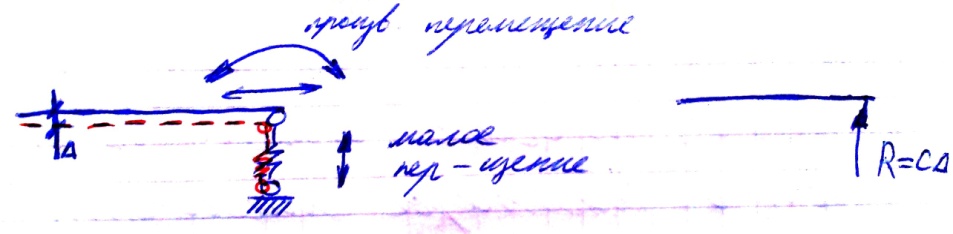 произв. перемещение
Δ
малое
пер-щение
R=CΔ